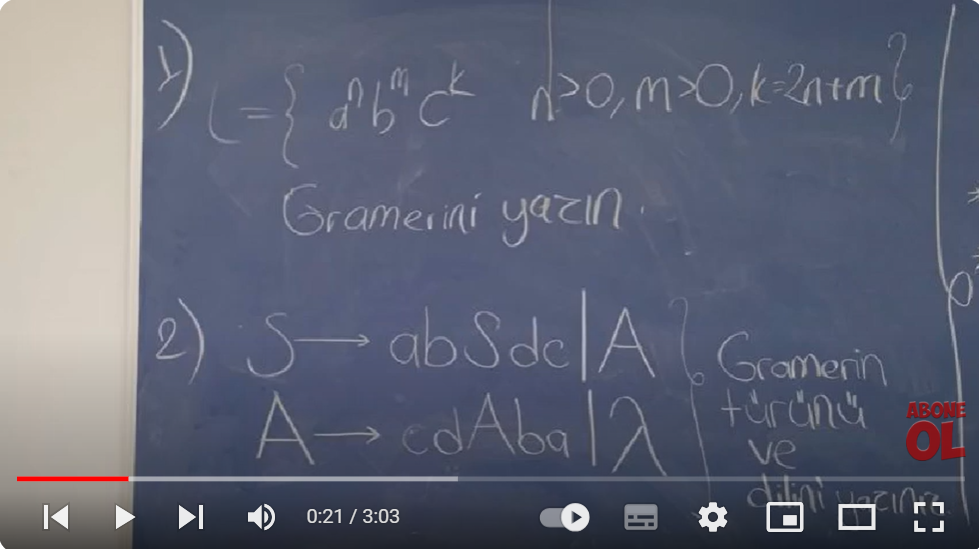 1) L = { aⁿ bᵐ cᵏ | n>0, m>0, k=2n+m }
Gramerini yazın.
2) S → abSdc | A
A → cdAba | λ
Gramerin
türünü
ve
dilini yazınız
ABONE
OL
0:21 / 3:03